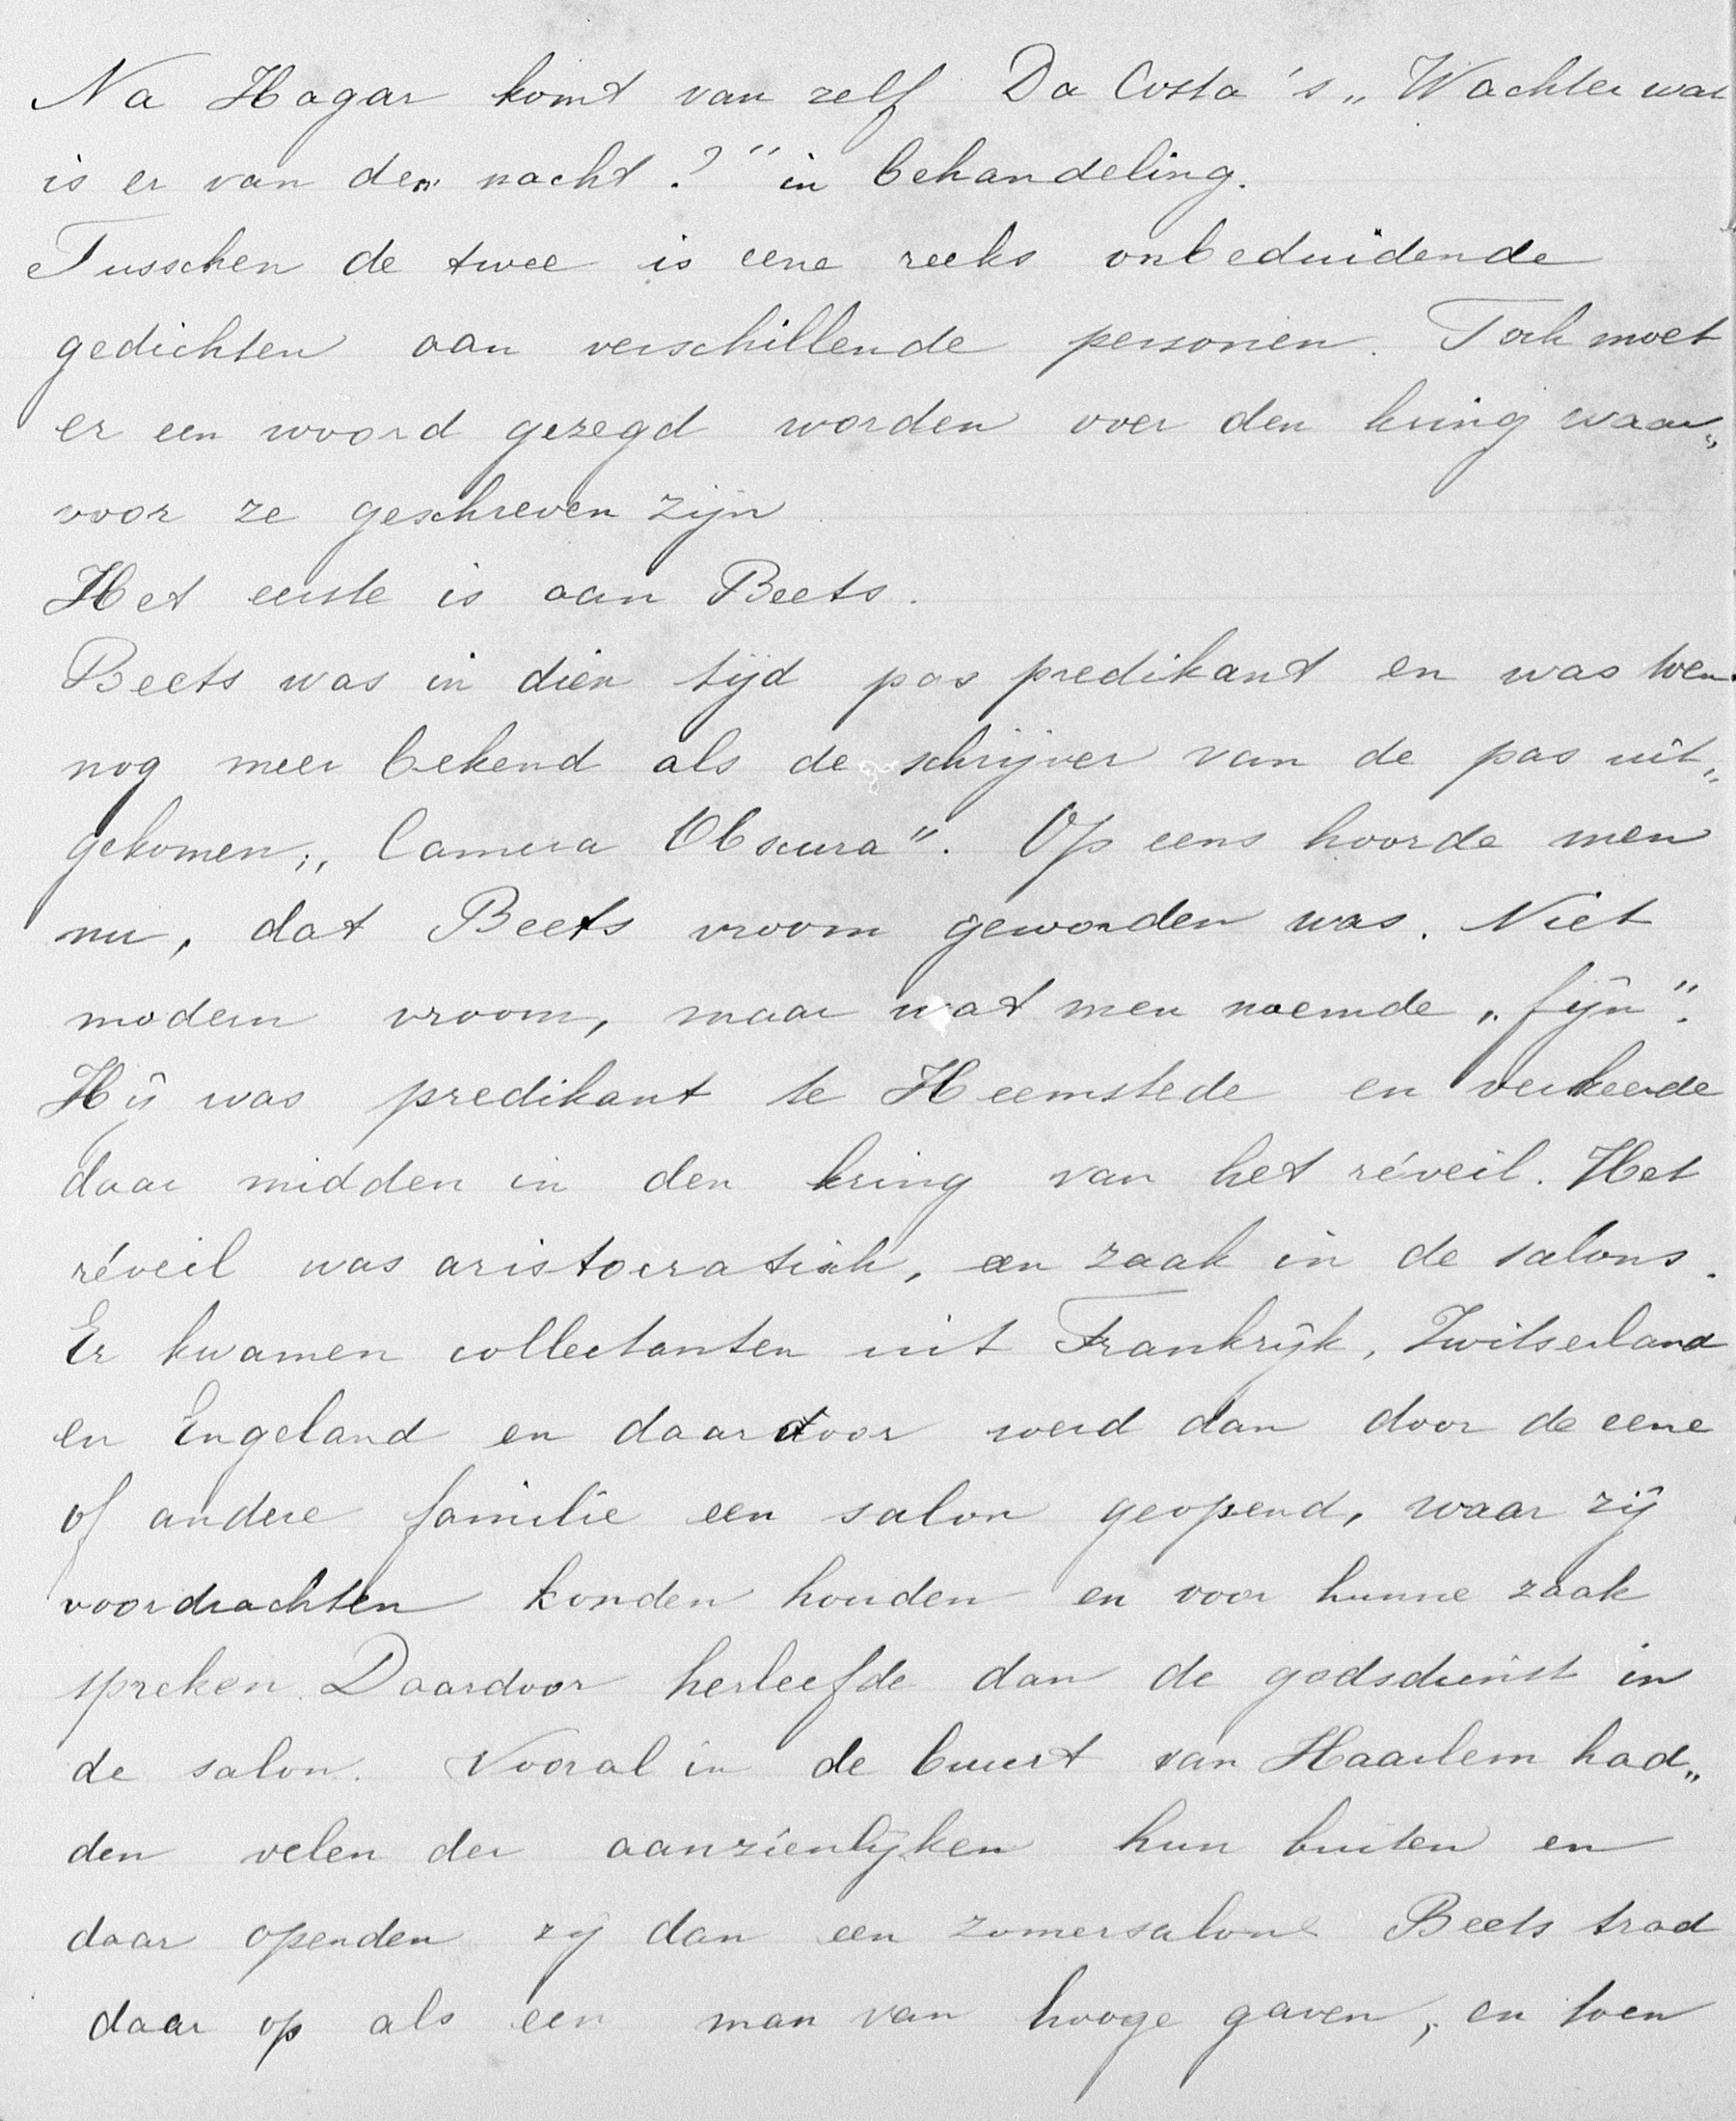 Na Hagar komt van zelf Da Costa's „Wachter wat
is er van den nacht?" in behandeling.
Tusschen de twee is eene reeks onbeduidende
gedichten aan verschillende personen. Toch moet
er een woord gezegd worden over den kring waar„
voor ze geschreven zijn
Het eerste is aan Beets.
Beets was in dien tijd pas predikant en was toen
nog meer bekend als de schrijver van de pas uit„
gekomen „Camera Obscura". Op eens hoorde men
nu, dat Beets vroom geworden was. Niet
modern vroom, maar wat men noemde „fijn".
Hij was predikant te Heemstede en verkeerde
daar midden in den kring van het réveil. Het
réveil was aristocratisch, een zaak in de salons.
Er kwamen collectanten uit Frankrijk, Zwitserland
en Engeland en daardoor werd dan door de eene
of andere familie een salon geopend, waar zij
voordrachten konden houden en voor hunne zaak
spreken. Daardoor herleefde dan de godsdienst in
de salon. Vooral in de buurt van Haarlem had„
den velen der aanzienlijken hun buiten en
daar openden zij dan een zomersalon Beets trad
daar op als een man van hooge gaven, en toen